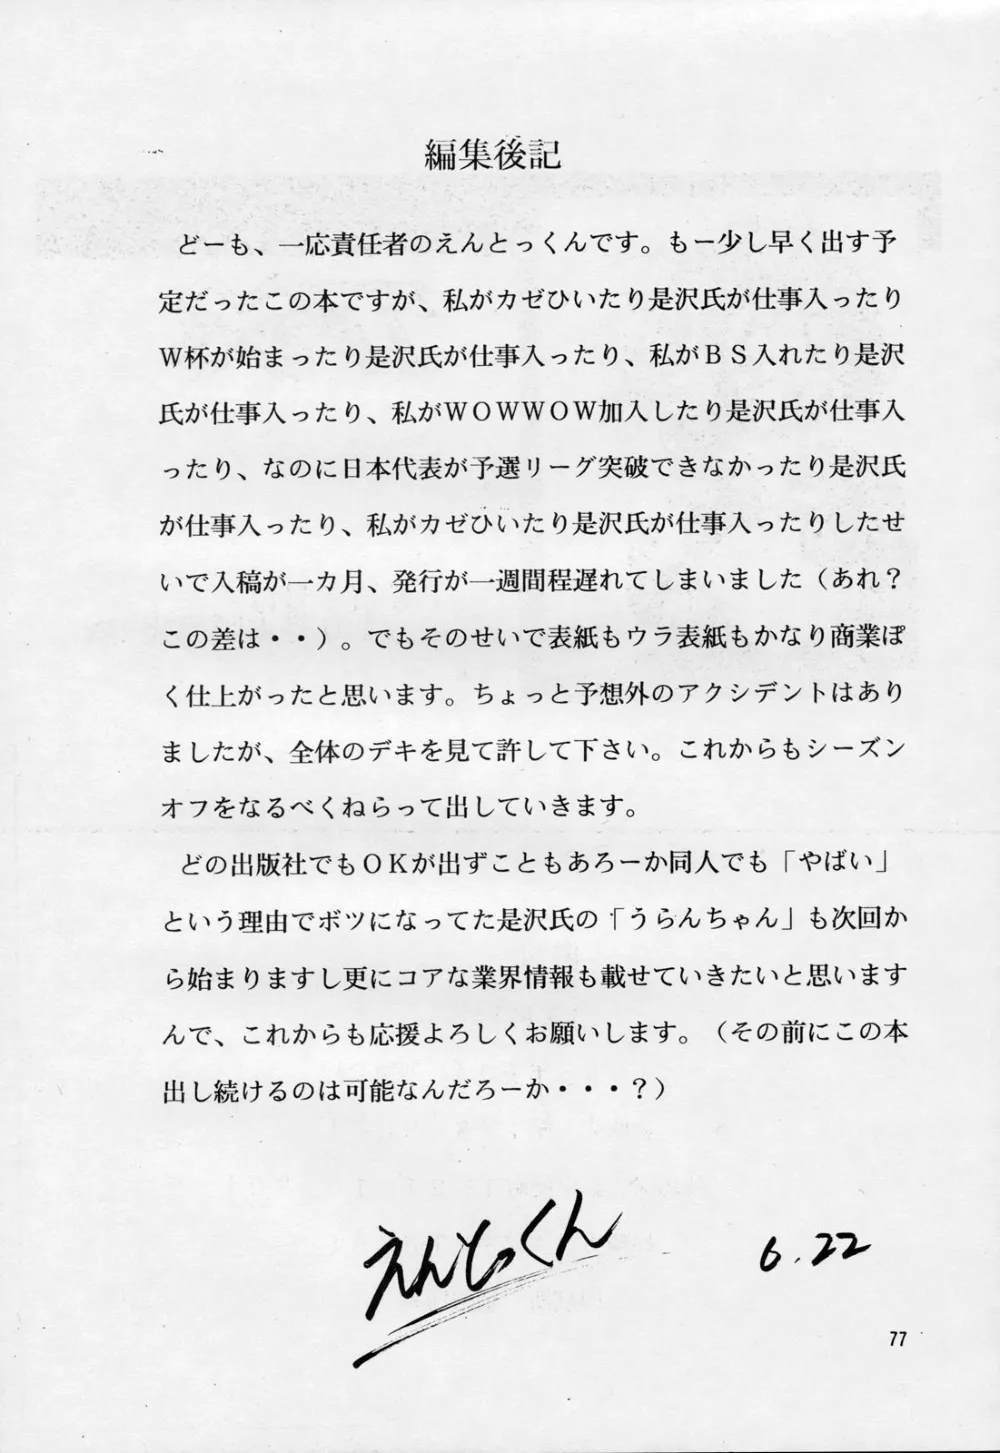 編集後記
どーも、一応責任者のえんとっくんです。もー少し早く出す予
定だったこの本ですが、私がカゼひいたり是沢氏が仕事入ったり
Ｗ杯が始まったり是沢氏が仕事入ったり、私がＢＳ入れたり是沢
氏が仕事入ったり、私がＷＯＷＷＯＷ加入したり是沢氏が仕事入
ったり、なのに日本代表が予選リーグ突破できなかったり是沢氏
が仕事入ったり、私がカゼひいたり是沢氏が仕事入ったりしたせ
いで入稿が一カ月、発行が一週間程遅れてしまいました（あれ？
この差は・・）。でもそのせいで表紙もウラ表紙もかなり商業ぽ
く仕上がったと思います。ちょっと予想外のアクシデントはあり
ましたが、全体のデキを見て許して下さい。これからもシーズン
オフをなるべくねらって出していきます。
どの出版社でもＯＫが出ずこともあろーか同人でも「やばい」
という理由でボツになってた是沢氏の「うらんちゃん」も次回か
ら始まりますし更にコアな業界情報も載せていきたいと思います
んで、これからも応援よろしくお願いします。（その前にこの本
出し続けるのは可能なんだろーか・・・？）
えんとっくん
6.22
77